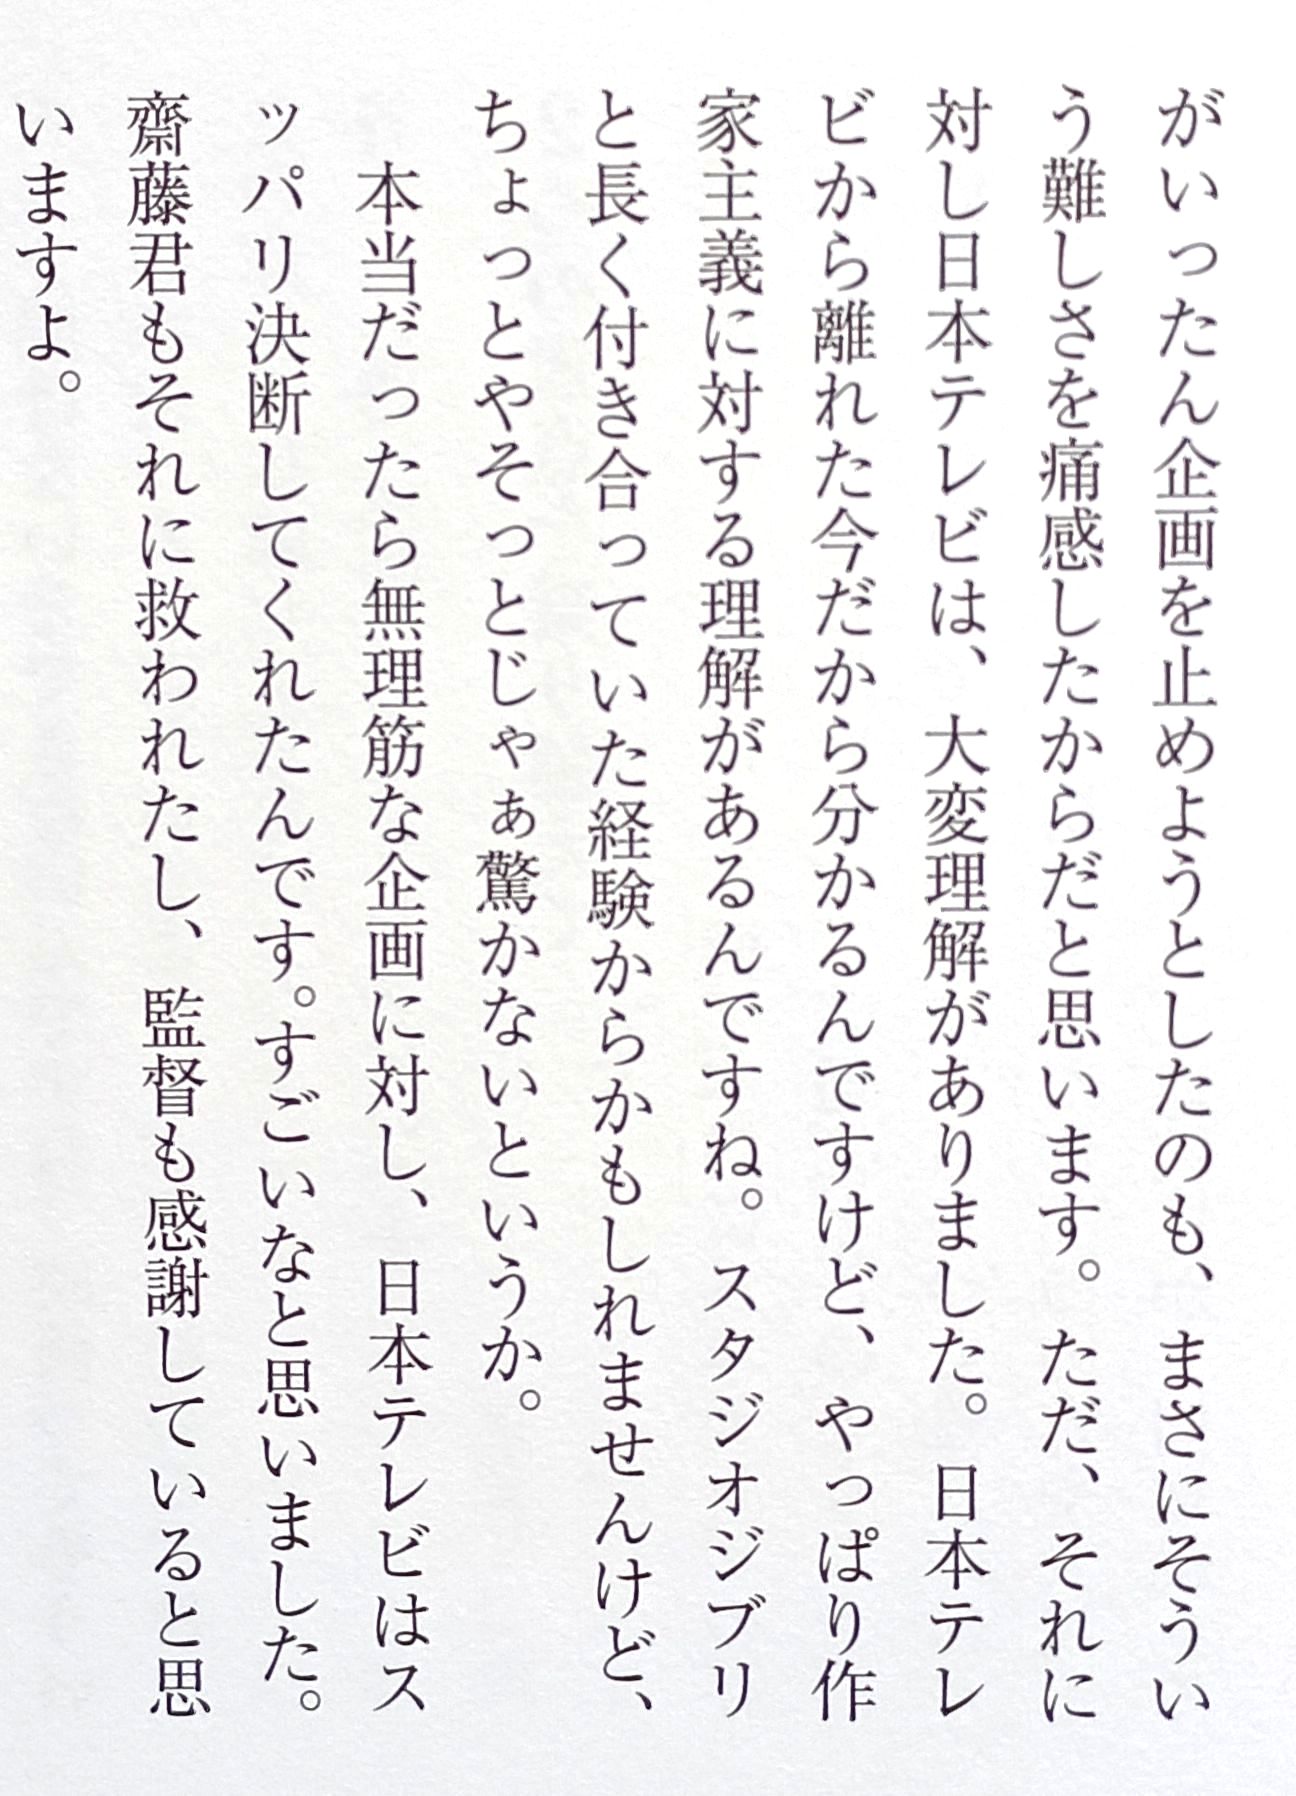 がいったん企画を止めようとしたのも、まさにそうい
う難しさを痛感したからだと思います。ただ、それに
対し日本テレビは、大変理解がありました。日本テレ
ビから離れた今だから分かるんですけど、やっぱり作
家主義に対する理解があるんですね。スタジオジブリ
と長く付き合っていた経験からかもしれませんけど、
ちょっとやそっとじゃぁ驚かないというか。
本当だったら無理筋な企画に対し、日本テレビはス
ッパリ決断してくれたんです。すごいなと思いました。
齋藤君もそれに救われたし、監督も感謝していると思
いますよ。